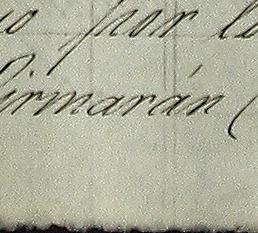 por
firmarán